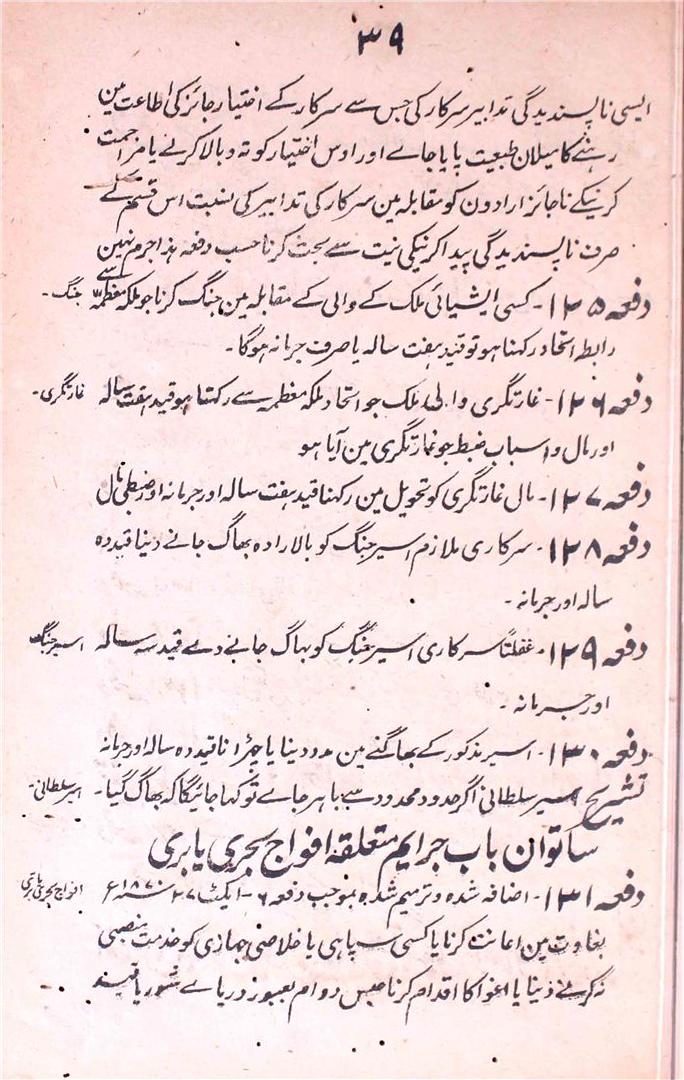 ۳۹
ایسی ناپسندیدگی تدابیر سرکار کی جس سے سرکار کے اختیار جائز کی اطاعت مین
رہنے کا میلان طبیعت پایا جاے اور اوس اختیار کو تہ و بالا کرنے یا مزاحمت
کرنیکے ناجائز ارادون کو مقابلہ مین سرکار کی تدابیر کی نسبت اس قسم کے
صرف ناپسندیدگی پیدا کرنیکی نیت سے بحث کرنا حسب دفعہ ہذا جرم نہین
دفعہ ۱۲۵- کسی ایشیائی ملک کے والی کے مقابلہ مین جنگ کرنا جو ملکہ معظمہ سے جنگ-
رابطہ اتحاد رکہتا ہو تو قید ہفت سالہ یا صرف جرمانہ ہوگا-
دفعہ ۱۲۶- غارتگری والی ملک جو اتحاد ملکہ معظمہ سے رکہتا ہو قید ہفت سالہ غارتگری-
اور مال و اسباب ضبط جو غارتگری مین آیا ہو
دفعہ ۱۲۷- مال غارتگری کو تحویل مین رکہنا قید ہفت سالہ اور جرمانہ اور ضبطی مال
دفعہ ۱۲۸- سرکاری ملازم اسیر جنگ کو بالارادہ بھاگ جانے دینا قید دہ
سالہ اور جرمانہ-
دفعہ ۱۲۹- غفلتًا سرکاری اسیر جنگ کو بہاگ جانے دے قید سہ سالہ اسیر جنگ
اور جرمانہ-
دفعہ ۱۳۰- اسیر مذکور کے بھاگنے مین مدد دینا یا چہڑانا قید دہ سالہ اور جرمانہ
تشریح اسیر سلطانی اگر حدود محدود سے باہر جاے تو کہا جائیگا کہ بھاگ گیا- اسیر سلطانی-
ساتوان باب جرایم متعلقہ افواج بحری یا بری
دفعہ ۱۳۱- اضافہ شدہ و ترمیم شدہ بموجب دفعہ ۶- ایکٹ ۲۷ سنہ ۱۸۷۰ء افواج بحری یا بری
بغاوت مین اعانت کرنا یا کسی سپاہی یا خلاصی جہازی کو خدمت منصبی
نہ کرنے دینا یا اغوا کا اقدام کرنا حبس دوام بعبور دریاے شور یا قید